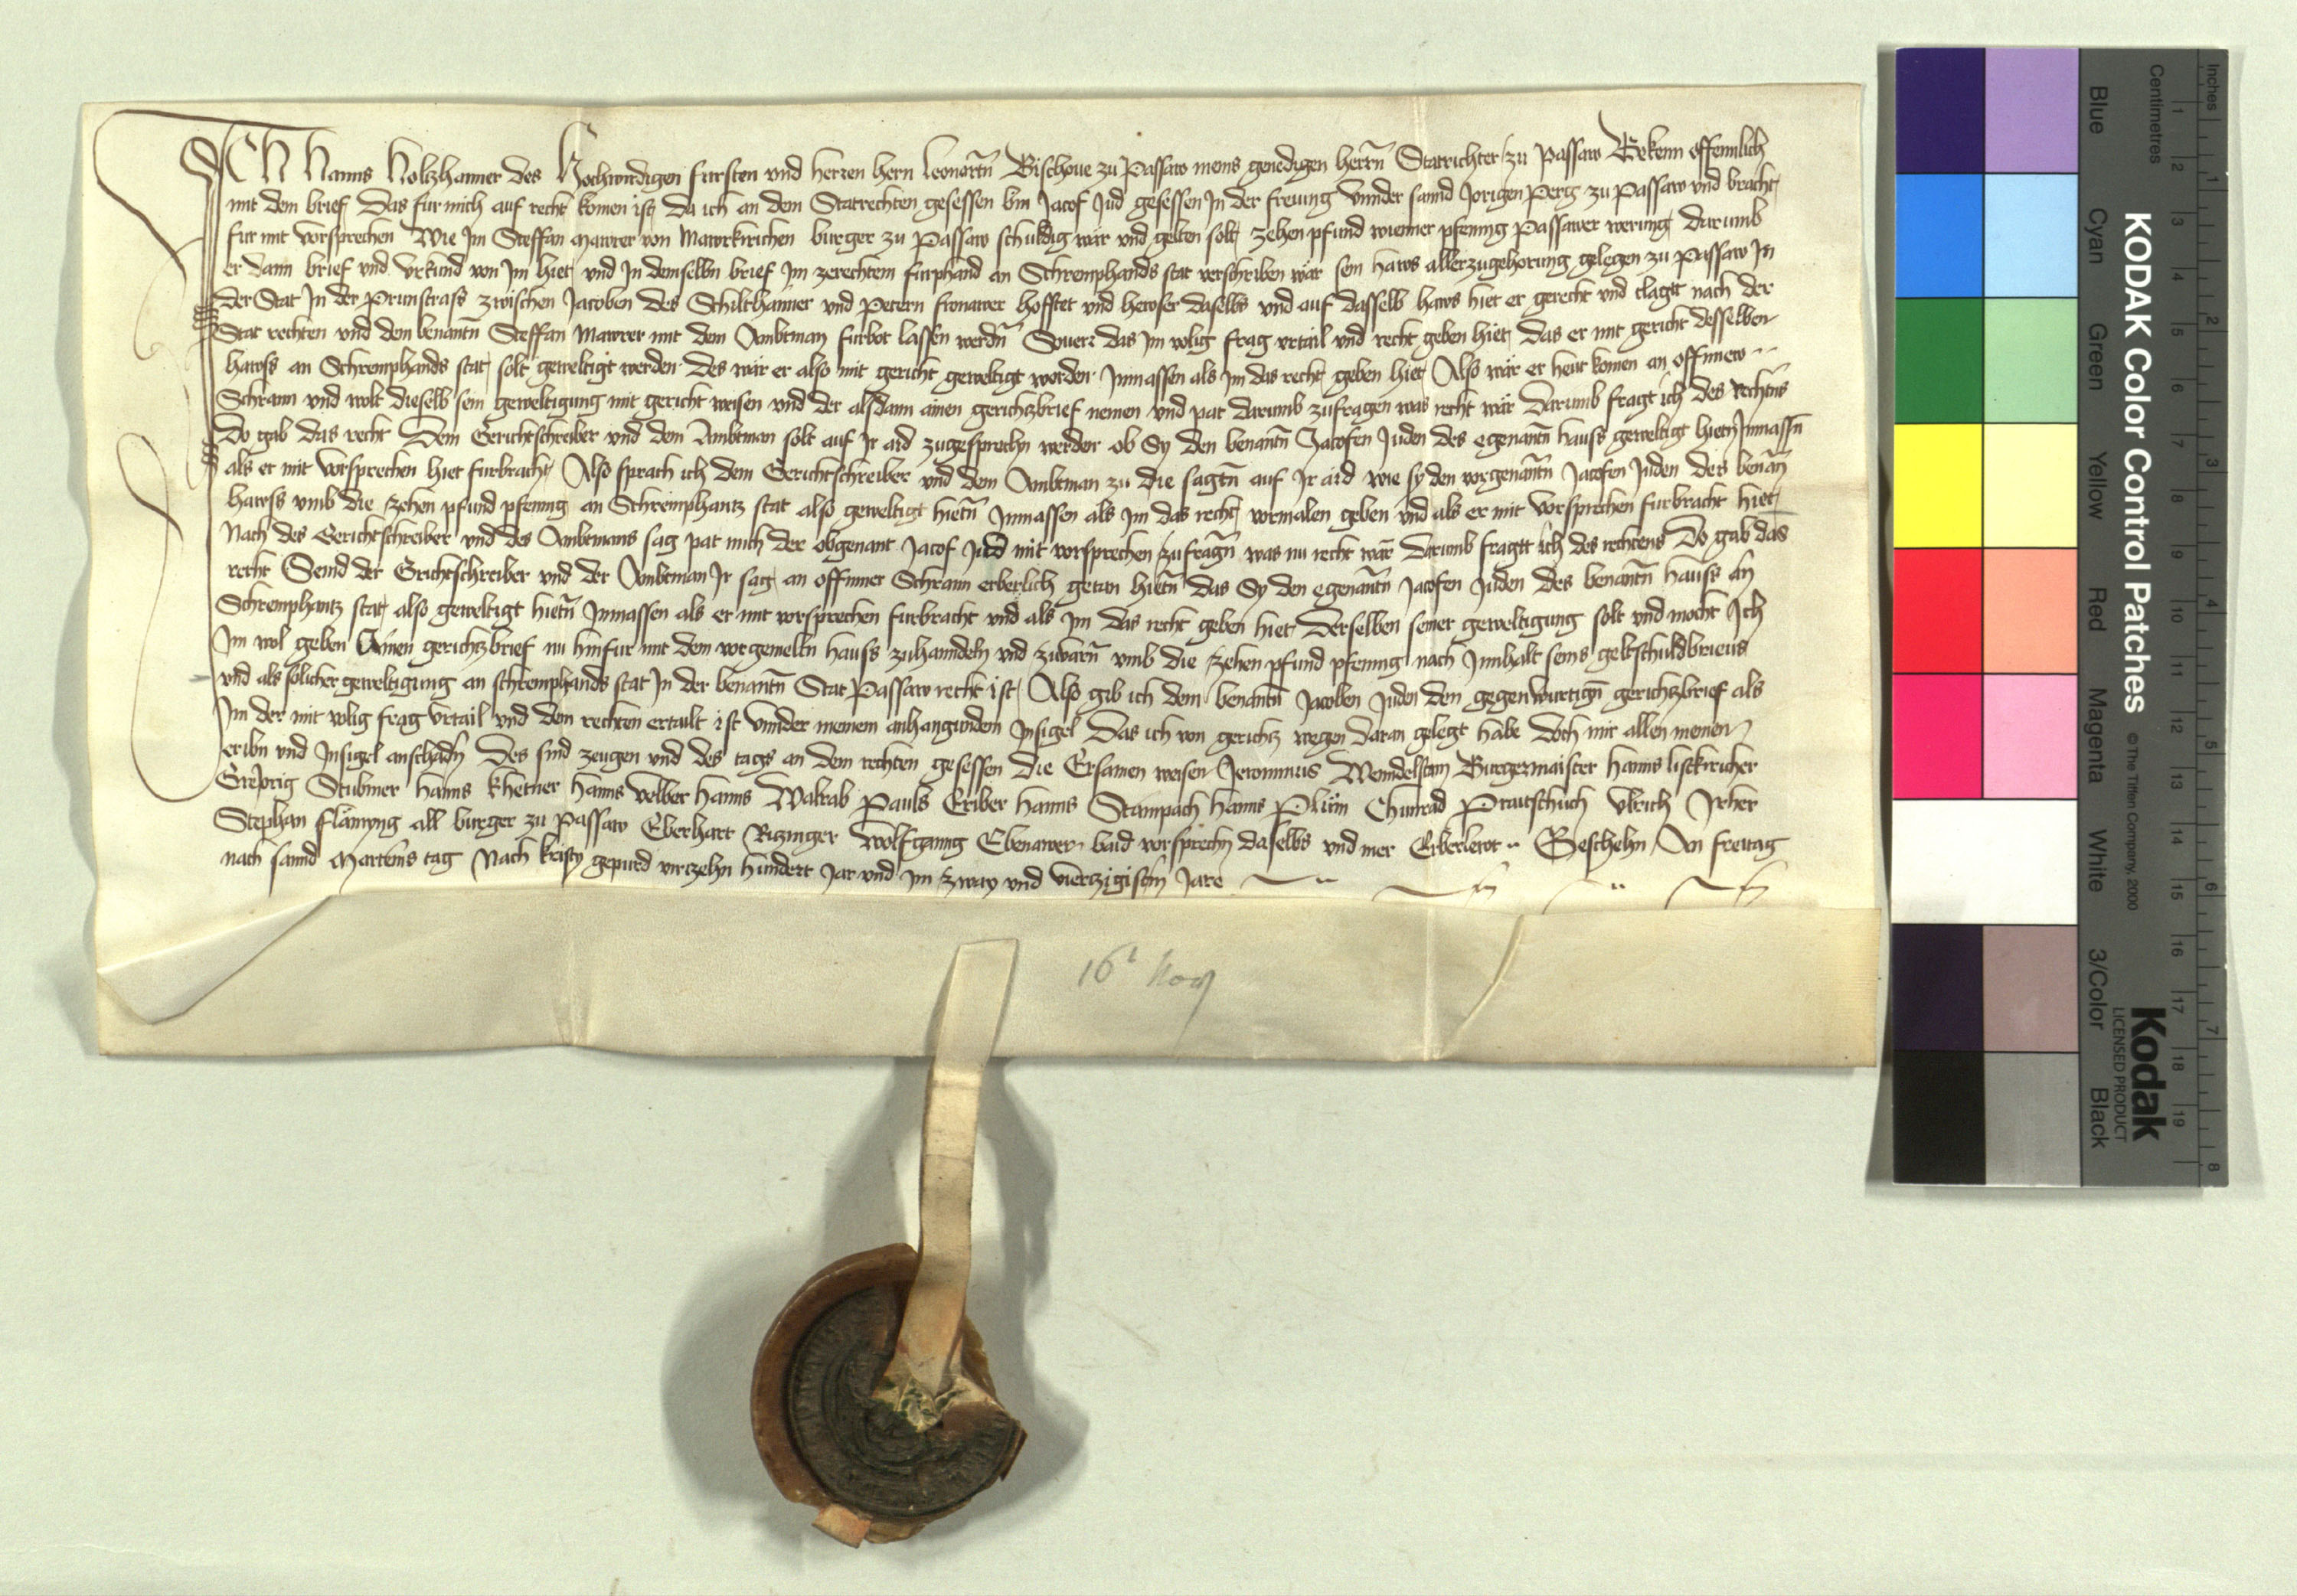 ICH Hanns Holtzhamer des Hochwirdigen fursten vnd herren hern Leonartn̄ Bischoue zu Passaw meins genedigen herrn̄ Statrichter zu Passaw Bekenn offennlich
mit dem brief Das fur mich auf recht komen ist da ich an dem Statrechten gesessen bin Jacof Jud gesessen In der freiung vnnder sannd Jorigen Perg zu Passaw vnd bracht
fur mit vorsprechen Wie Im Steffan Mawrer von Mawrkirichen burger zu Passaw schuldig wär vnd gelten solt zehen pfund wienner pfening Passawer werung Darumb
er dann brief vnd vrkund von Im hiet vnd In demselbn brief Im zerechtem furphand an Schremphands stat verschriben wär sein haws allerzugehorung gelegen zu Passaw In
der Stat In der Prunstrass zwischen Jacoben des Schilthamer vnd Petern fronawer hofstet vnd hewser daselbs vnd auf dasselb haws hiet er gerecht vnd clagtt nach der
Stat rechten vnd dem benantn̄ Steffan Mawrer mit dem Ambtman furbot lassen werdn̄ Souerr das Im volig frag vrtail vnd recht geben hiet Das er mit gericht desselben
hawss an Schremphands stat solt geweltigt werden Des wär er also mit gericht geweltigt worden Inmassen als Im das recht geben hiet Also wär er heut komen an offnnew
Schrann vnd wolt dieselb sein geweltigung mit gericht weisen vnd der alsdann ainen gerichtzbrief nemen vnd pat darumb zufragen was recht wär Darumb fragt ich des rechtens
Do gab das recht Dem Gerichtschreiber vnd dem Ambtman solt auf Ir aid zugesprochn werden ob Sy den benantn̄ Jacofen Juden des egenantn̄ hauss geweltigt hietn Inmassn̄
als er mit vorsprechen hiet furbracht Also sprach ich dem Gerichtschreiber vnd dem Ambtman zu die sagtn̄ auf Ir aid wie sy den vorgenantn̄ Jacofen Juden des benan̄
hawss vmb die zehen pfund pfening an Schremphantz stat also geweltigt hietn̄ Inmassen als Im das recht vormalen geben vnd als er mit vorsprechen furbracht hiet
Nach des Gerichtschreiber vnd des Ambtmans sag pat mich der obgenant Jacof Jud mit vorsprechen zufragn̄ was nu recht wär Darumb fragtt ich des rechtens Do gab das
recht Seind der Grichtschreiber vnd der Ambtman Ir sag an offnner Schrann erberlich getan hietn̄ das Sy den egenantn̄ Jacofen Juden des benantn̄ hauss an
Schremphantz stat also geweltigt hietn̄ Inmassen als er mit vorsprechen furbracht vnd als Im das recht geben hiet Derselben seiner geweltigung solt vnd mocht Ich
Im wol geben Ainen gerichtzbrief nu hinfur mit dem vorgemeltn hauss zuhanndeln vnd zuvarn̄ vmb die zehen pfund pfening nach Innhalt seins geltschuldbrieus
vnd als solicher geweltigung an schremphands stat In der benantn̄ Stat Passaw recht ist Also gib ich dem benantn̄ Jacoben Juden den gegenwurtign̄ gerichtzbrief als
Im der mit volig frag vrtail vnd dem rechten ertailt ist vnnder meinem anhangundem Insigel Das ich von gerichtz wegen daran gelegt habe Doch mir allen meinen
eribn vnd Insigel anschadn̄ Des sind zeugen vnd des tags an dem rechten gesessen Die Ersamen weisen Jeronimus Wenndelstain Burgermaister Hanns listkircher
Greiorig Stubmer Hanns Khetner Hanns Velber Hanns Walrab Pauls Eriber Hanns Stampach Hanns Plüm Chunrad Prautschuch Vlrich Irher
Stephan flämyng all burger zu Passaw Eberhart Ritzinger Wolfganng Ebenawer baid vorsprechn daselbs vnd mer Erberlewt Geschehn An freitag
nach sannd Marteins tag Nach kristy gepurd vierzehn hundert Jar vnd Im zway vnd viertzigistm Jare
16t Nov
KODAK Color Control Patches
© The Tiffen Company, 2000
Kodak
LICENSED PRODUCT
Blue Cyan Green Yellow Red Magenta White 3/Color Black
Centimetres 1 2 3 4 5 6 7 8 9 10 11 12 13 14 15 16 17 18 19
Inches 1 2 3 4 5 6 7 8